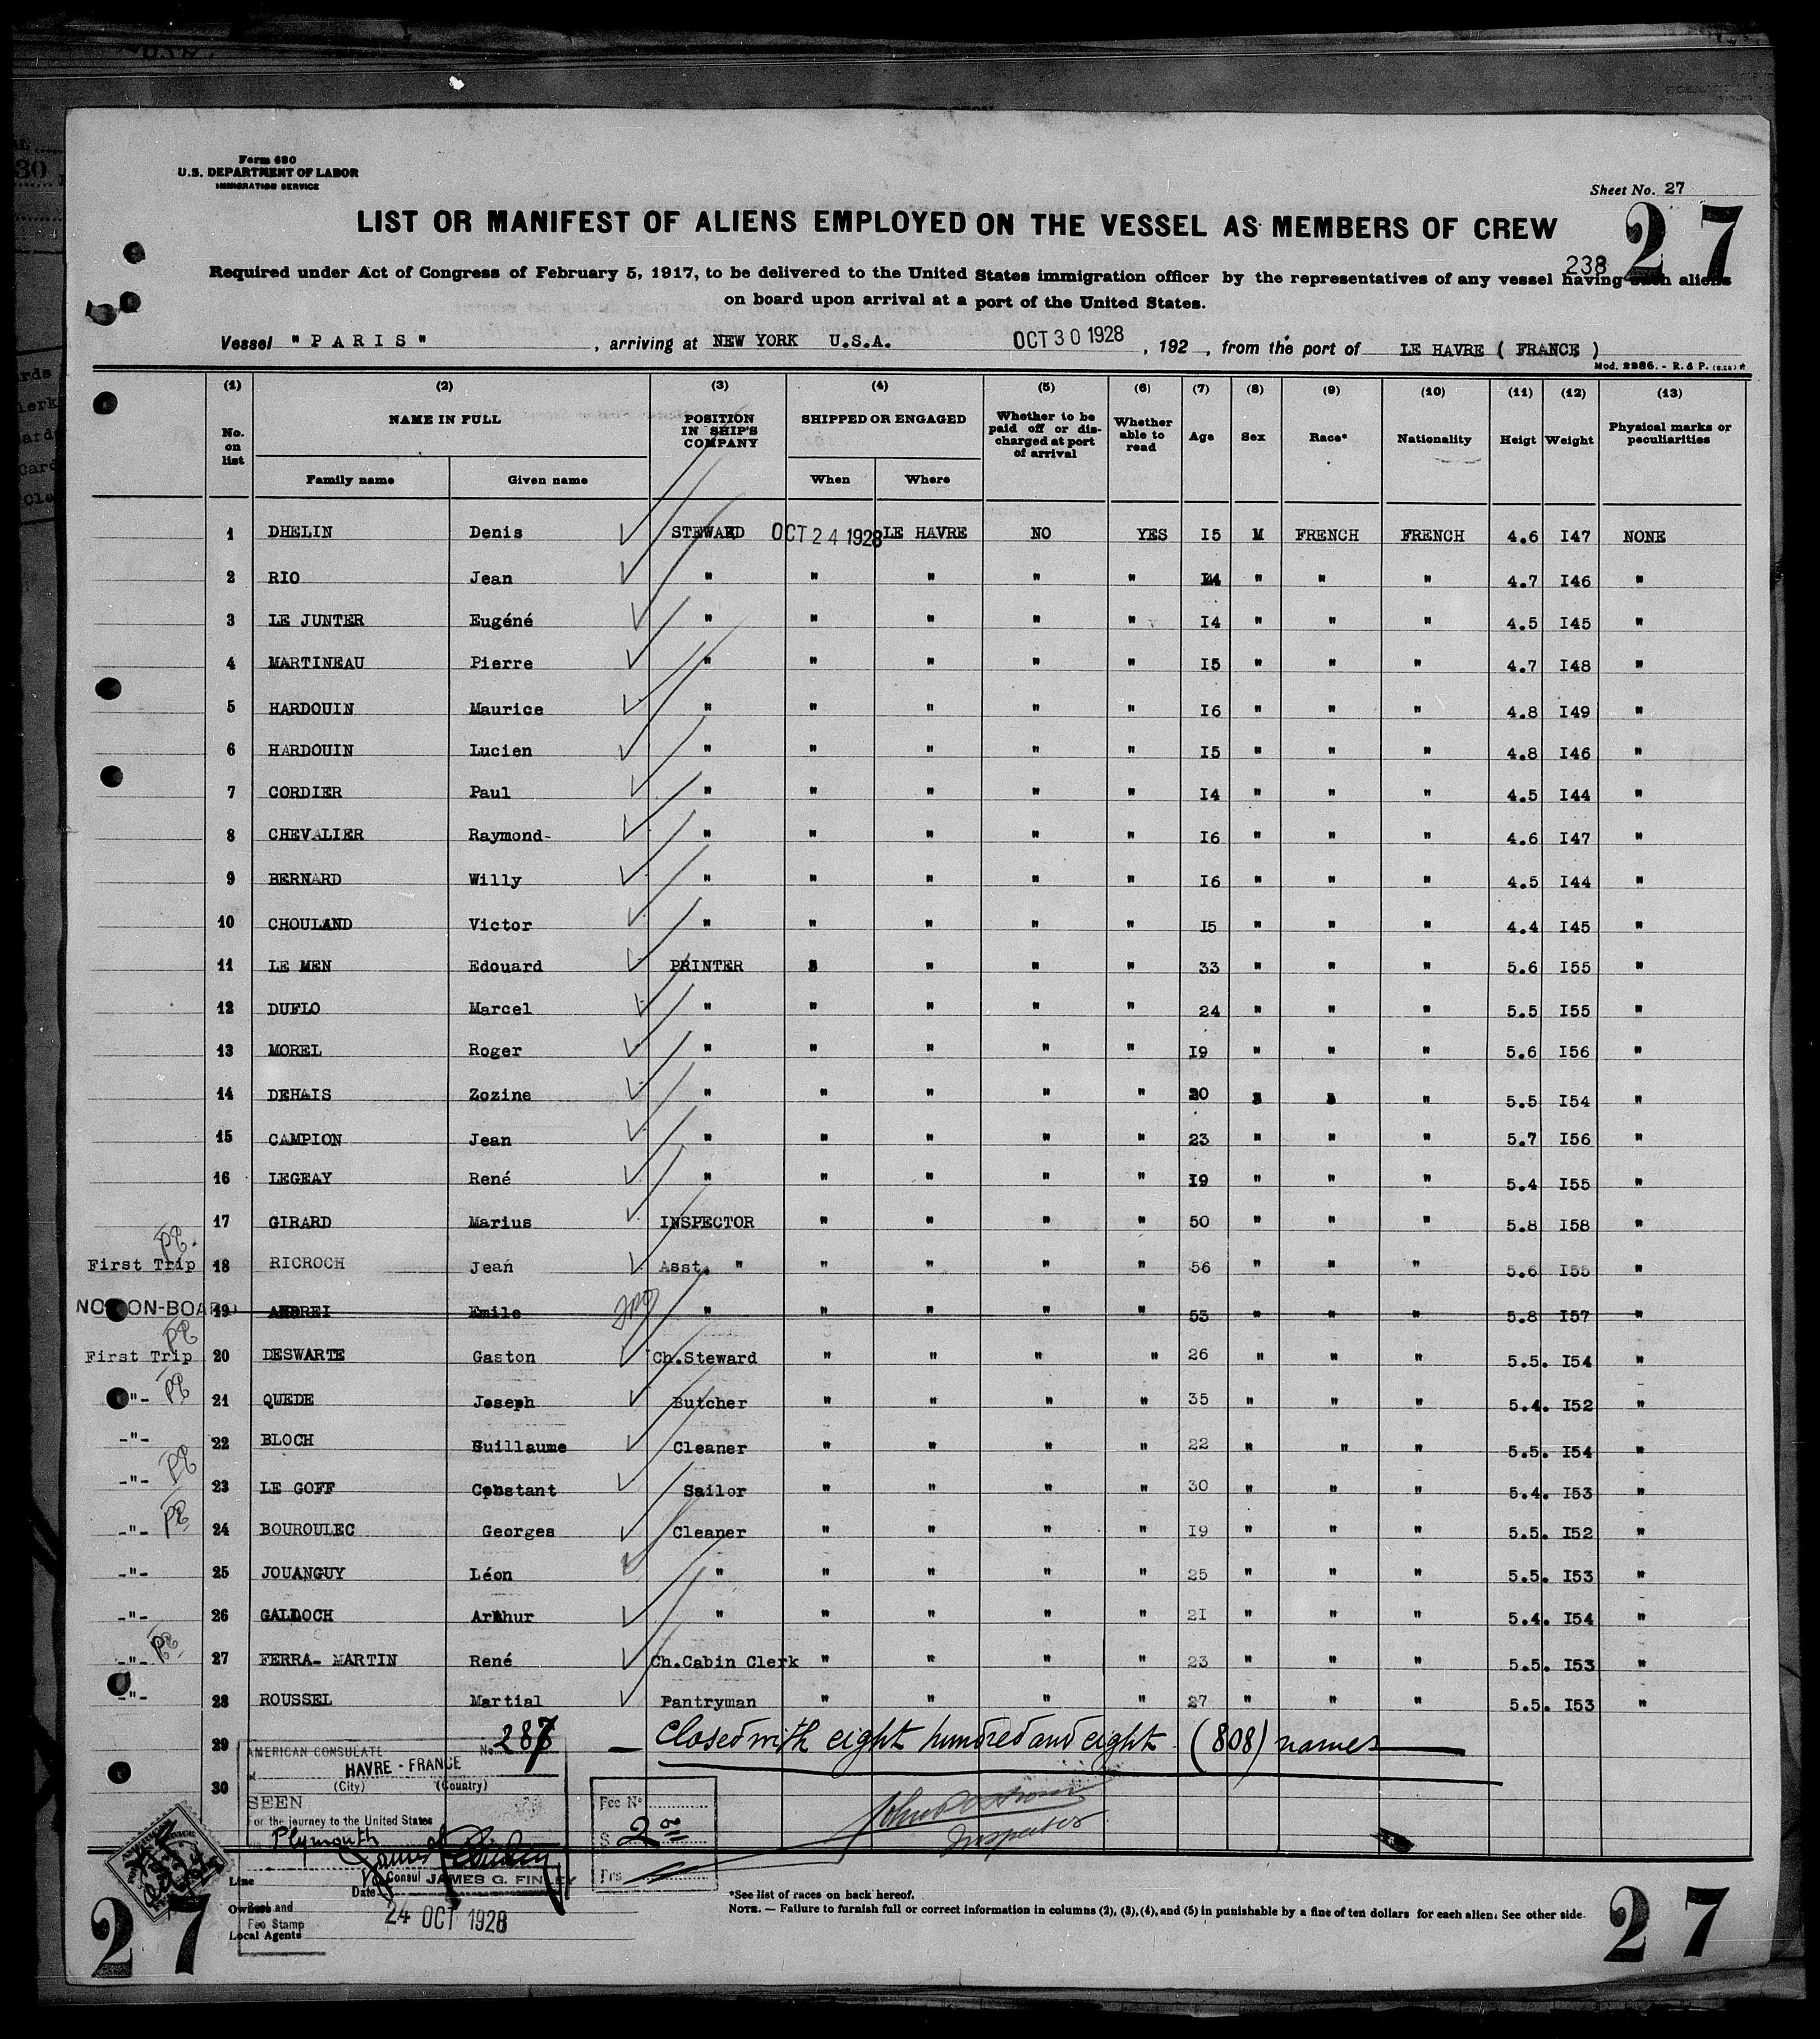 Form 680
U.S. DEPARTMENT OF LABOR
IMMIGRATION SERVICE
Sheet No. 27
27
LIST OR MANIFEST OF ALIENS EMPLOYED ON THE VESSEL AS MEMBERS OF CREW
238
Required under Act of Congress of February 5, 1917, to be delivered to the United States immigration officer by the representatives of any vessel having such aliens
on board upon arrival at a port of the United States.
Vessel "PARIS", arriving at NEW YORK U.S.A. OCT 30 1928, 192 , from the port of LE HAVRE ( FRANCE )
Mod. 2286. - R. & P.
(1) (2) (3) (4) (5) (6) (7) (8) (9) (10) (11) (12) (13)
No. on list NAME IN FULL POSITION IN SHIP'S COMPANY SHIPPED OR ENGAGED Whether to be paid off or discharged at port of arrival Whether able to read Age Sex Race* Nationality Heigt Weight Physical marks or peculiarities
Family name Given name When Where
1 DHELIN Denis STEWARD OCT 24 1928 LE HAVRE NO YES I5 M FRENCH FRENCH 4.6 I47 NONE
2 RIO Jean " " " " " I4 " " " 4.7 I46 "
3 LE JUNTER Eugéné " " " " " I4 " " " 4.5 I45 "
4 MARTINEAU Pierre " " " " " I5 " " " 4.7 I48 "
5 HARDOUIN Maurice " " " " " I6 " " " 4.8 I49 "
6 HARDOUIN Lucien " " " " " I5 " " " 4.8 I46 "
7 CORDIER Paul " " " " " I4 " " " 4.5 I44 "
8 CHEVALIER Raymond- " " " " " I6 " " " 4.6 I47 "
9 BERNARD Willy " " " " " I6 " " " 4.5 I44 "
10 CHOULAND Victor " " " " " I5 " " " 4.4 I45 "
11 LE MEN Edouard PRINTER " " " " 33 " " " 5.6 I55 "
12 DUFLO Marcel " " " " " 24 " " " 5.5 I55 "
13 MOREL Roger " " " " " I9 " " " 5.6 I56 "
14 DEHAIS Zozine " " " " " 20 " " " 5.5 I54 "
15 CAMPION Jean " " " " " 23 " " " 5.7 I56 "
16 LEGEAY René " " " " " I9 " " " 5.4 I55 "
17 GIRARD Marius INSPECTOR " " " " 50 " " " 5.8 I58 "
First Trip 18 RICROCH Jean Asst. " " " " " 56 " " " 5.6 I55 "
NOT ON-BOARD 19 ANDREI Emile " " " " " 53 " " " 5.8 I57 "
First Trip 20 DESWARTE Gaston Ch.Steward " " " " 26 " " " 5.5. I54 "
-"- 21 QUEDE Joseph Butcher " " " " 35 " " " 5.4. I52 "
-"- 22 BLOCH Guillaume Cleaner " " " " 22 " " " 5.5. I54 "
-"- 23 LE GOFF Constant Sailor " " " " 30 " " " 5.4. I53 "
-"- 24 BOUROULEC Georges Cleaner " " " " I9 " " " 5.5. I52 "
-"- 25 JOUANGUY Léon " " " " " 25 " " " 5.5. I53 "
-"- 26 GALLOCH Arthur " " " " " 2I " " " 5.4. I54 "
-"- 27 FERRA- MARTIN René Ch.Cabin Clerk " " " " 23 " " " 5.5. I53 "
-"- 28 ROUSSEL Martial Pantryman " " " " 27 " " " 5.5. I53 "
29 Closed with eight hundred and eight (808) names
30
AMERICAN CONSULATE No. 287
HAVRE - FRANCE
(City) (Country)
SEEN
For the journey to the United States
Plymouth
Consul JAMES G. FINLEY
Line
Date
24 OCT 1928
Owners and
Fee Stamp
Local Agents
Fee No
$ 2
Frs
Inspector
*See list of races on back hereof.
NOTE. — Failure to furnish full or correct information in columns (2), (3), (4), and (5) in punishable by a fine of ten dollars for each alien. See other side.
27
27